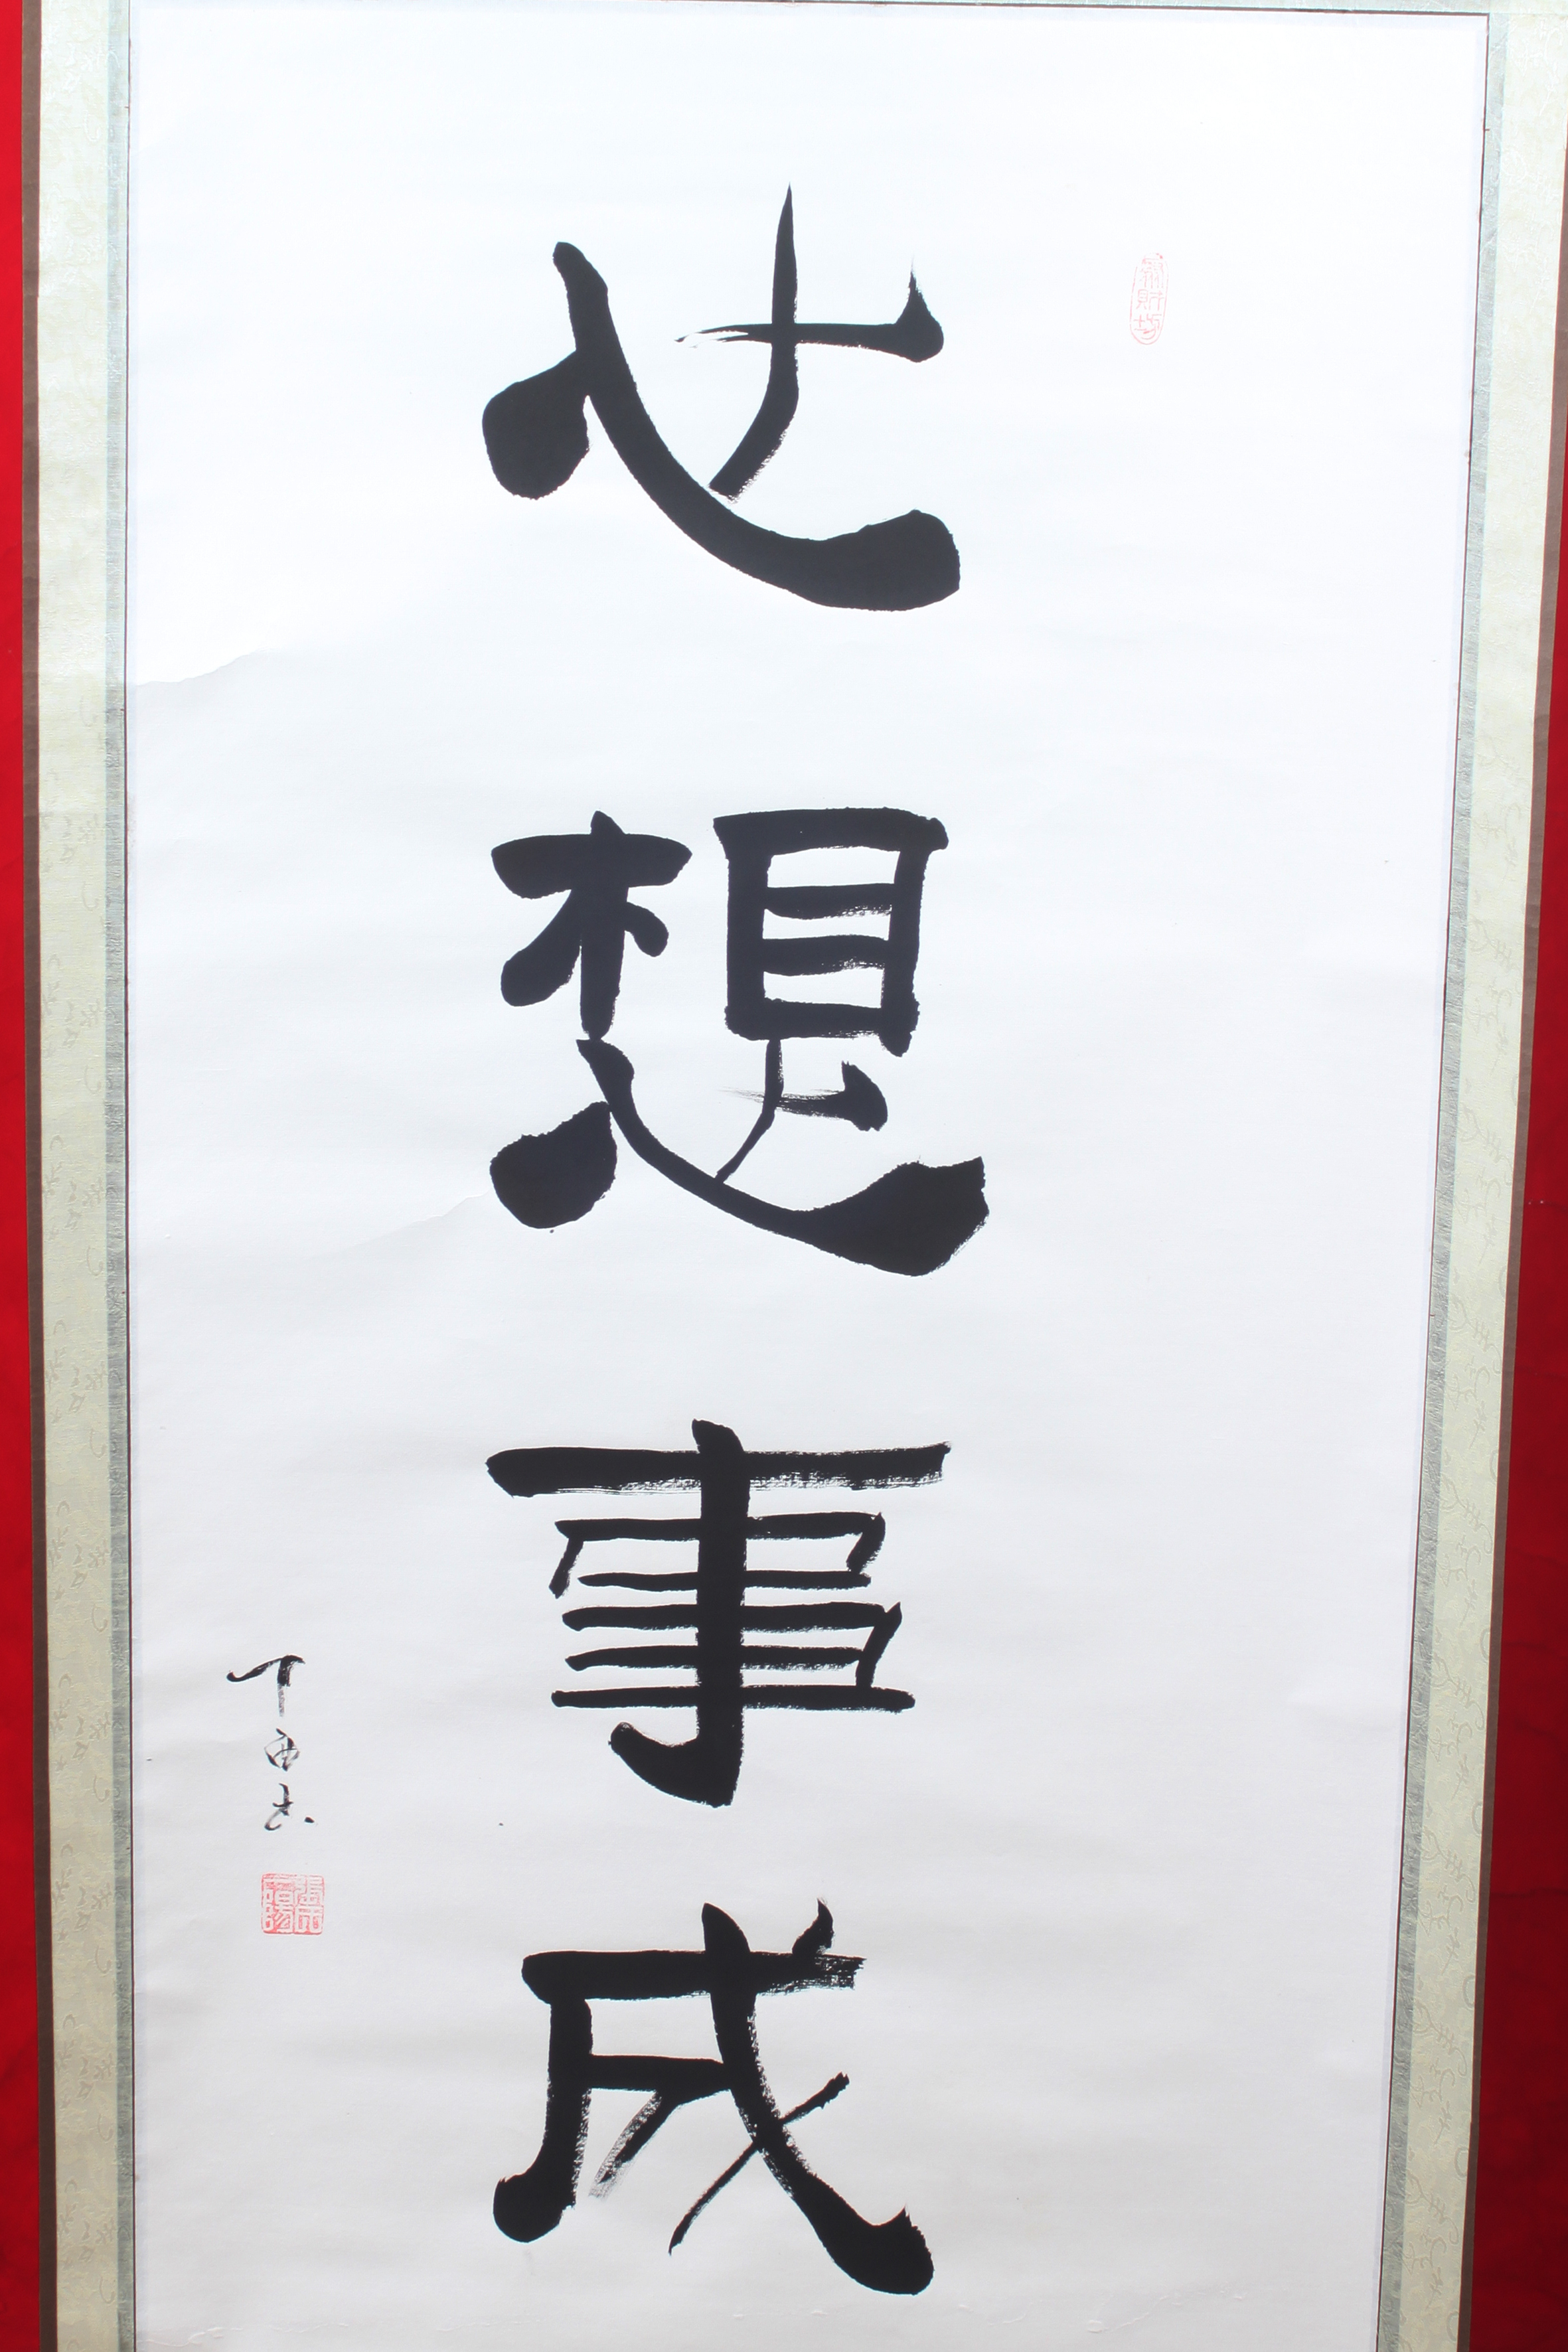 心想事成
丁酉书